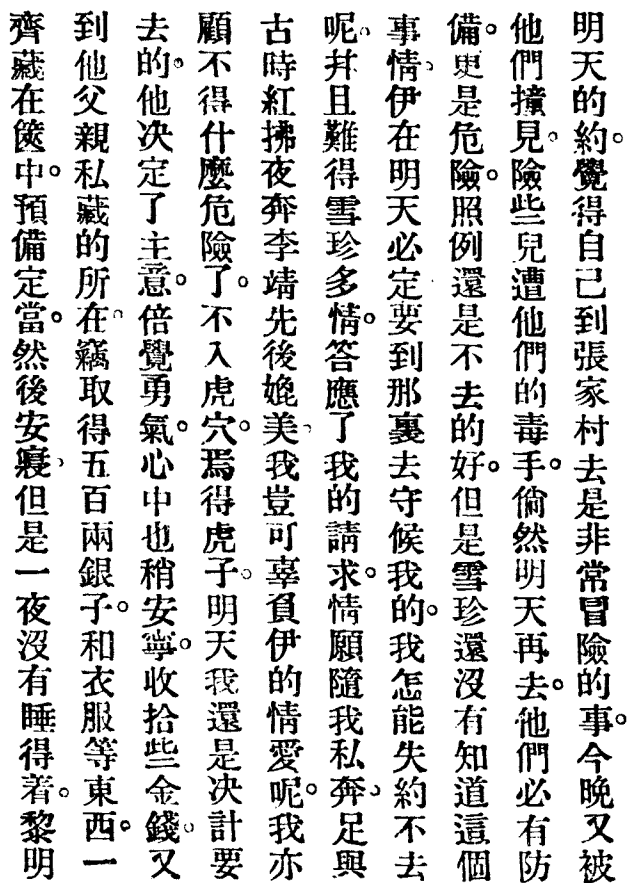 明天的約。覺得自己到張家村去是非常冒險的事。今晚又被
他們撞見。險些兒遭他們的毒手。倘然明天再去。他們必有防
備。更是危險。照例還是不去的好。但是雪珍還沒有知道這個
事情、伊在明天必定要到那裏去守候我的。我怎能失約不去
呢。幷且難得雪珍多情。答應了我的請求。情願隨我私奔、足與
古時紅拂夜奔李靖先後媲美、我豈可辜負伊的情愛呢。我亦
顧不得什麼危險了。不入虎穴。焉得虎子。明天我還是決計要
去的。他決定了主意。倍覺勇氣。心中也稍安寧。收拾些金錢。又
到他父親私藏的所在。竊取得五百兩銀子。和衣服等東西。一
齊藏在篋中。預備定當。然後安寢、但是一夜沒有睡得着。黎明